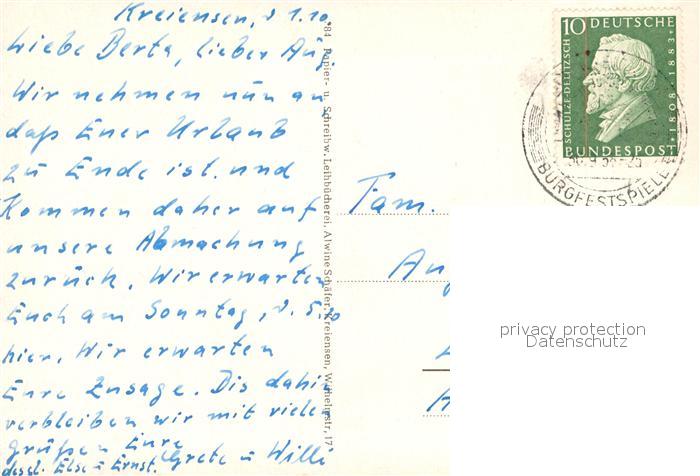 Kreiensen, d 1.10.
Liebe Berta, lieber Aug.
Wir nehmen nun an
daß Euer Urlaub
zu Ende ist. und
Kommen daher auf
unsere Abmachung
zurück. Wir erwarten
Euch am Sonntag, d. 5.10
hier. Wir erwarten
Eure Zusage. Bis dahin
verbleiben wir mit vielen
Grüßen Eure
Grete u Willi
desgl. Else u Ernst.
84 Papier- u. Schreibw. Leihbücherei, Alwine Schäfer, Kreiensen, Wilhelmstr. 17
10 DEUTSCHE
SCHULZE-DELITZSCH
*1808-1883+
BUNDESPOST
BURGFESTSPIELE
Fam.
privacy protection
Datenschutz